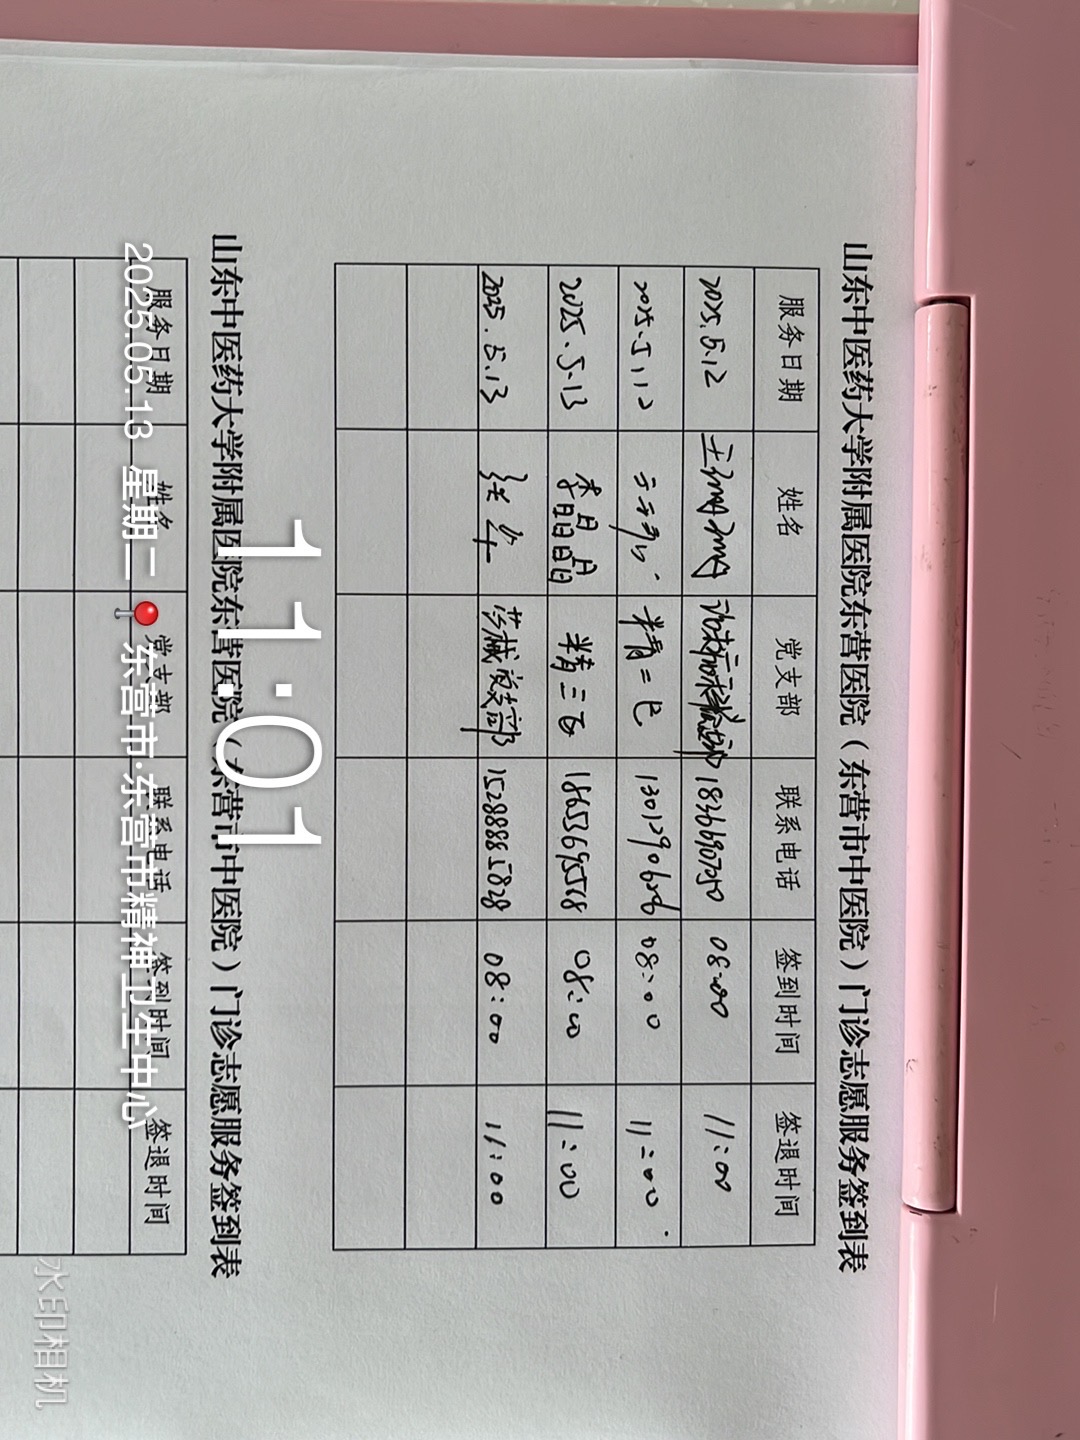 山东中医药大学附属医院东营医院（东营市中医院）门诊志愿服务签到表
服务日期 姓名 党支部 联系电话 签到时间 签退时间
2025.5.12 18366907050 08:00 11:00
2025.5.12 精二 13012906226 08:00 11:00
2025.5.13 李晶晶 精三 18653695568 08:00 11:00
2025.5.13 张华 药械党支部 15288885828 08:00 11:00
山东中医药大学附属医院东营医院（东营市中医院）门诊志愿服务签到表
服务日期 姓名 党支部 联系电话 签到时间 签退时间
11:01
2025.05.13 星期二 东营市·东营市精神卫生中心
水印相机